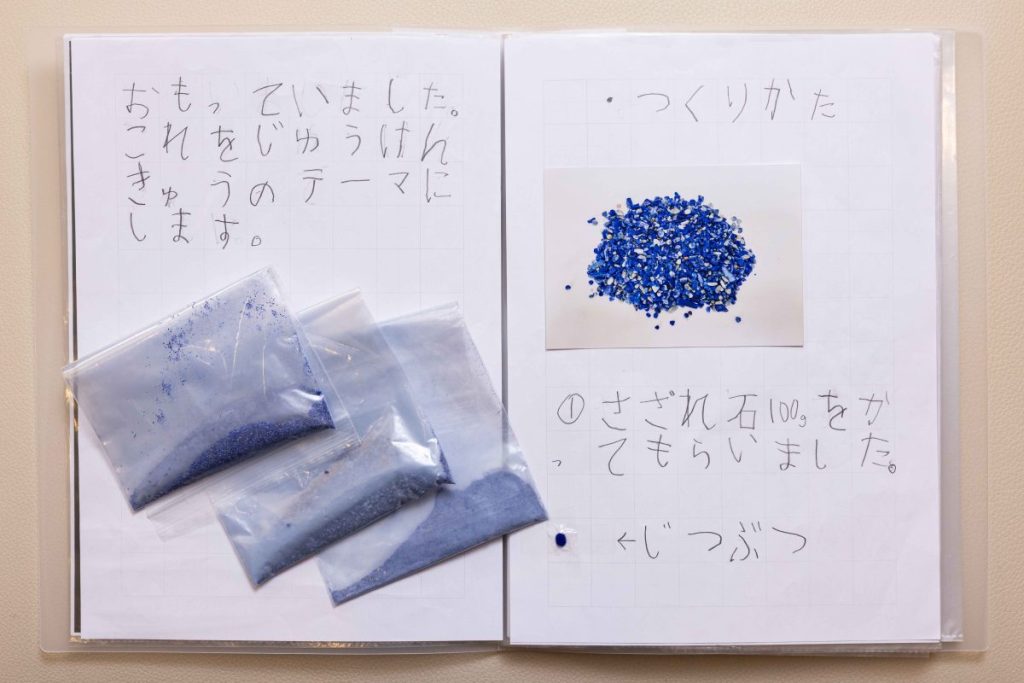 おもっていました。
これをじゆうけん
きゅうのテーマに
します。
・つくりかた
①さざれ石100gをか
ってもらいました。
←じつぶつ